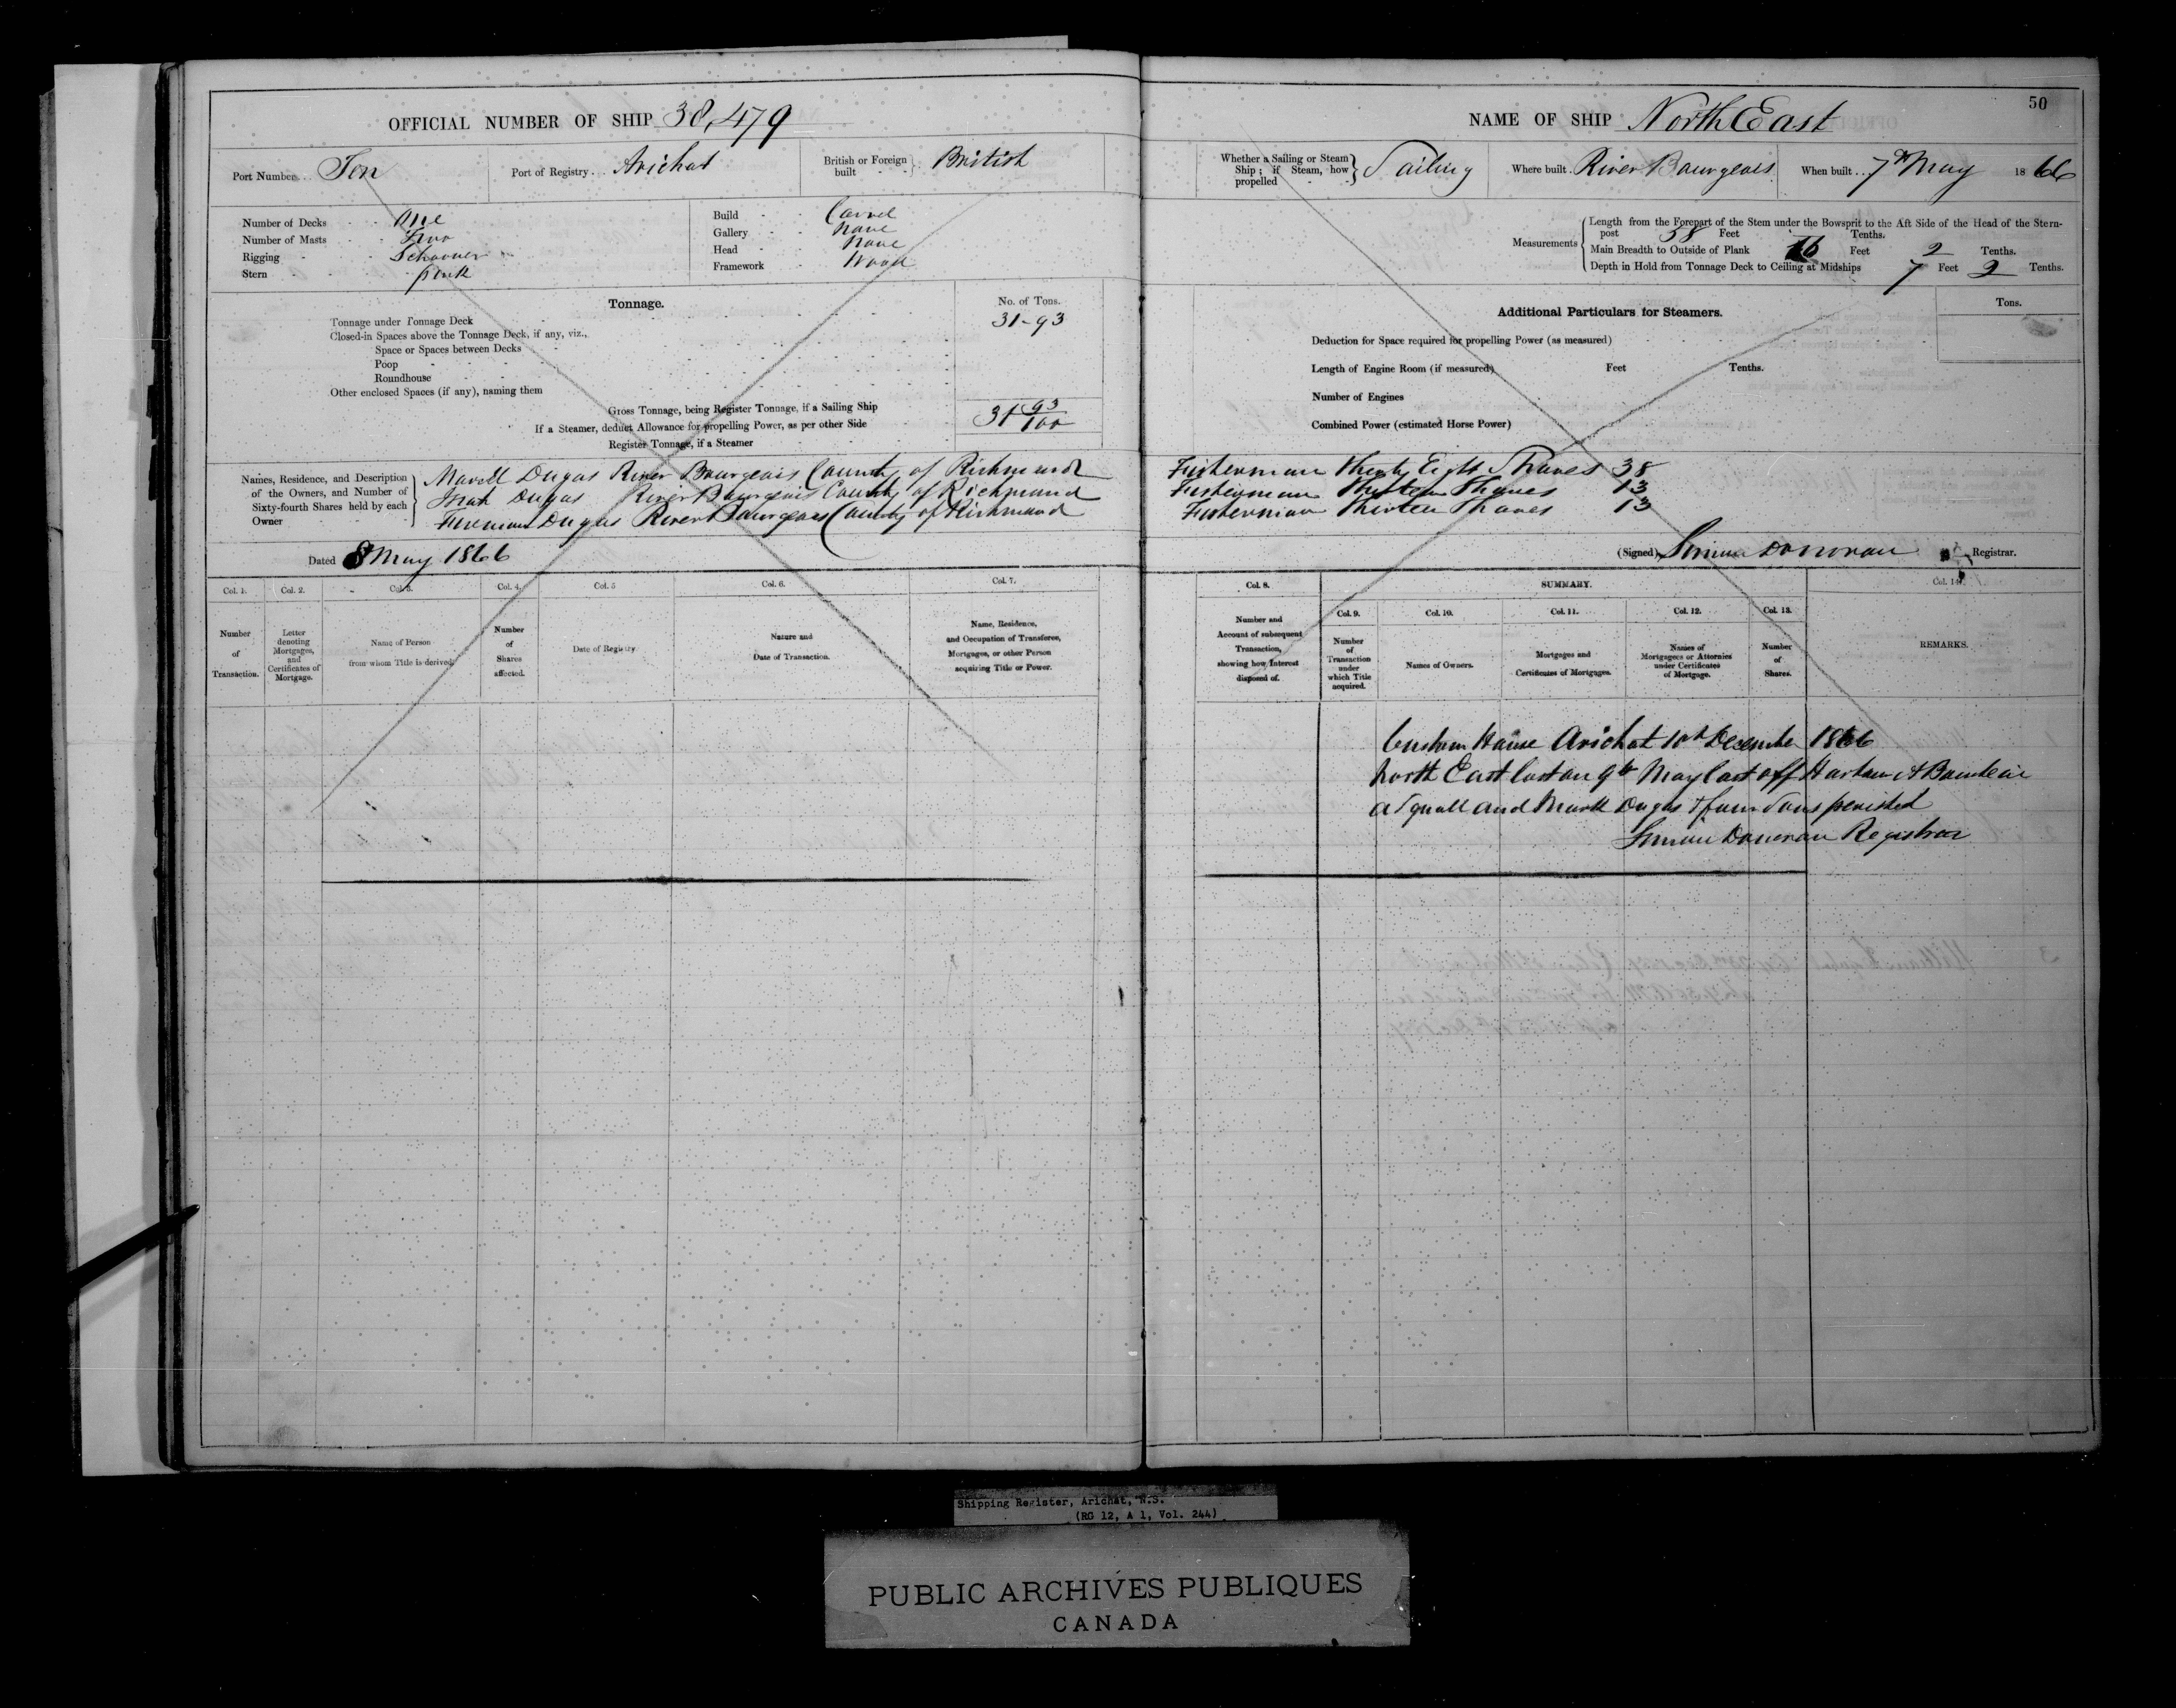 OFFICIAL NUMBER OF SHIP 38,479
Port Number Ten
Port of Registry Arichat
British or Foreign built British
Number of Decks One
Number of Masts Two
Rigging Schooner
Stern pink
Build Carvel
Gallery None
Head None
Framework Wood
Tonnage.
No. of Tons.
Tonnage under Tonnage Deck 31-93
Closed-in Spaces above the Tonnage Deck, if any, viz.,
Space or Spaces between Decks
Poop
Roundhouse
Other enclosed Spaces (if any), naming them
Gross Tonnage, being Register Tonnage, if a Sailing Ship 31 93/100
If a Steamer, deduct Allowance for propelling Power, as per other Side
Register Tonnage, if a Steamer
Names, Residence, and Description of the Owners, and Number of Sixty-fourth Shares held by each Owner
Dugas River Bourgeois County of Richmond
Dugas River Bourgeois County of Richmond
Dugas River Bourgeois County of Richmond
Dated 8 May 1866
Col. 1. Col. 2. Col. 3. Col. 4. Col. 5 Col. 6. Col. 7.
Number of Transaction.
Letter denoting Mortgages, and Certificates of Mortgage.
Name of Person from whom Title is derived.
Number of Shares affected.
Date of Registry
Nature and Date of Transaction.
Name, Residence, and Occupation of Transferee, Mortgagee, or other Person acquiring Title or Power.
50
NAME OF SHIP North East
Whether a Sailing or Steam Ship; if Steam, how propelled Sailing
Where built River Bourgeois
When built 7th May 1866
Measurements
Length from the Forepart of the Stem under the Bowsprit to the Aft Side of the Head of the Stern-
post 58 Feet Tenths.
Main Breadth to Outside of Plank 16 Feet 2 Tenths.
Depth in Hold from Tonnage Deck to Ceiling at Midships 7 Feet 2 Tenths.
Additional Particulars for Steamers.
Tons.
Deduction for Space required for propelling Power (as measured)
Length of Engine Room (if measured) Feet Tenths.
Number of Engines
Combined Power (estimated Horse Power)
Fisherman Thirty Eight Shares 38
Fisherman Thirteen Shares 13
Fisherman Thirteen Shares 13
(Signed) Simon Donovan Registrar.
Col. 8. SUMMARY. Col. 14.
Col. 9. Col. 10. Col. 11. Col. 12. Col. 13.
Number and Account of subsequent Transaction, showing how Interest disposed of.
Number of Transaction under which Title acquired.
Names of Owners.
Mortgages and Certificates of Mortgages.
Names of Mortgagees or Attornies under Certificates of Mortgage.
Number of Shares.
REMARKS.
Custom House Arichat 10th December 1866
North East lost on 9th May last off
a Squall and Dugas & four Sons perished
Simon Donovan Registrar
Shipping Register, Arichat, N.S.
(RG 12, A 1, Vol. 244)
PUBLIC ARCHIVES PUBLIQUES
CANADA